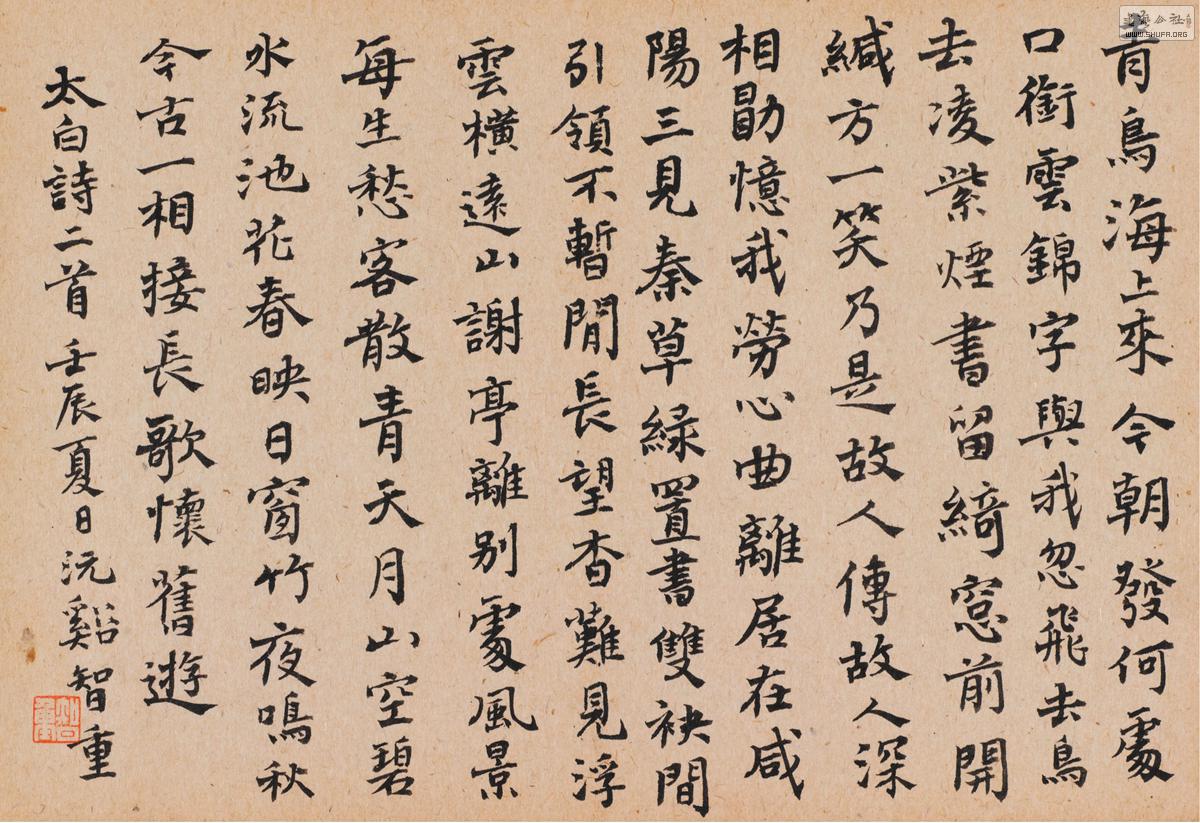 青鳥海上來今朝發何處
口銜雲錦字與我忽飛去鳥
去凌紫煙書留綺窓前開
緘方一笑乃是故人傳故人深
相勖憶我勞心曲離居在咸
陽三見秦草緑置書雙袂間
引領不暫閒長望杳難見浮
雲橫遠山謝亭離別處風景
每生愁客散青天月山空碧
水流池花春映日窗竹夜鳴秋
今古一相接長歌懷舊遊
太白詩二首 壬辰夏日沅谿智重
智重
WWW.SHUFA.ORG